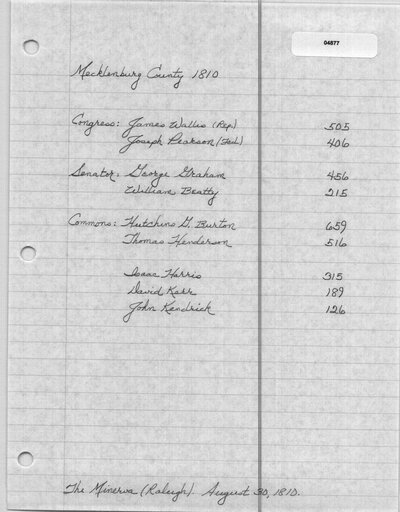 04877
Mecklenburg County 1810
Congress: James Wallis (Rep) 505
Joseph Pearson (Fed) 406
Senator: George Graham 456
William Beatty 215
Commons: Hutchins G. Burton 659
Thomas Henderson 516
Isaac Harris 315
David Karr 189
John Kendrick 126
The Minerva (Raleigh). August 30, 1810.